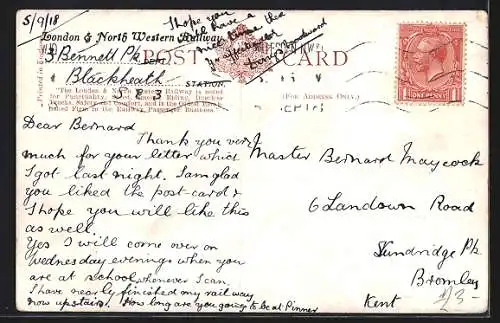 5/9/18
London & North Western Railway.
3 Bennett Pk
Blackheath
S E 3
STATION,
POST CARD
I hope you
will have a
nice time
"The London & North Western Railway is noted
for Punctuality, Speed, Smooth Riding, Dustless
Tracks, Safety and Comfort, and is the Oldest Estab-
lished Firm in the Railway Passenger Business."
(FOR ADDRESS ONLY.)
ONE PENNY
Dear Bernard
Thank you very
much for your letter which
I got last night. I am glad
you liked the post-card &
I hope you will like this
as well.
Yes I will come over on
Wednesday evenings when you
are at school whenever I can.
I have nearly finished my railway
now upstairs. How long are you going to be at Pinner
Master Bernard Maycock
6 Landown Road
Sundridge Pk
Bromley
Kent
£3-